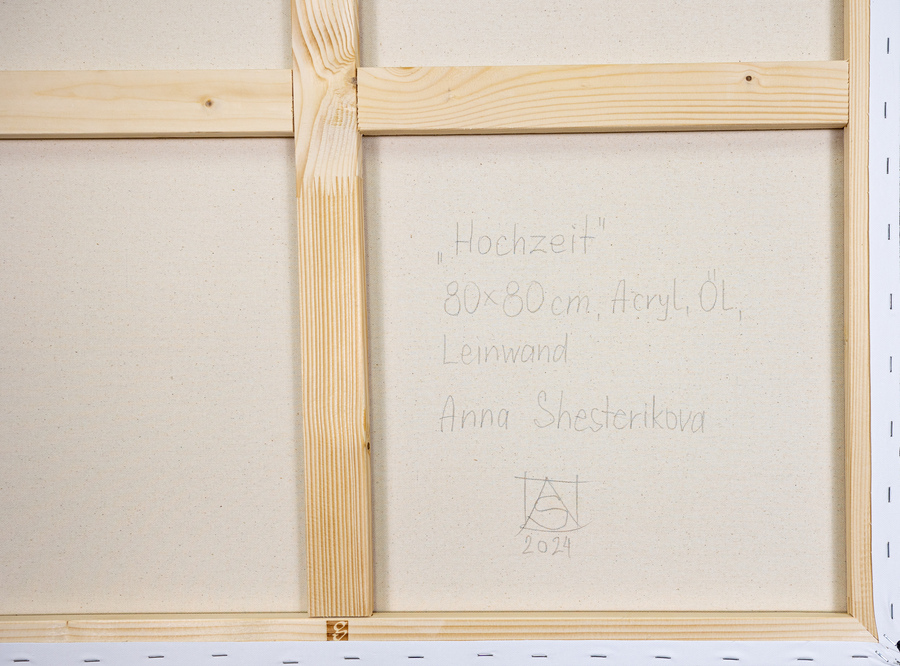 „Hochzeit"
80×80 cm, Acryl, Öl,
Leinwand
Anna Shesterikova
2024